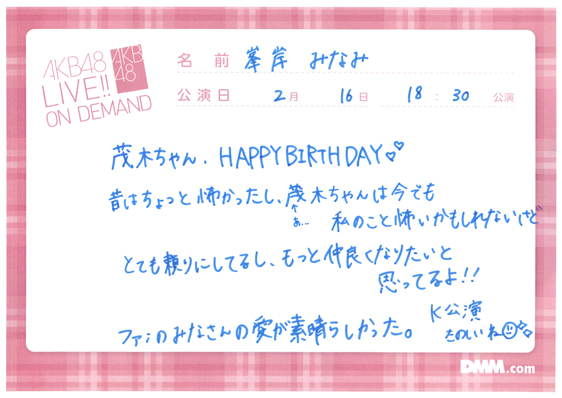 AKB48
LIVE!!
ON DEMAND
AKB
48
名前 峯岸 みなみ
公演日 2月 16日 18:30 公演
茂木ちゃん、HAPPY BIRTHDAY♡♡
昔はちょっと怖かったし、茂木ちゃんは今でも
あ…
私のこと怖いかもしれないけど
とても頼りにしてるし、もっと仲良くなりたいと
思ってるよ!!
K公演
たのしいね
ファンのみなさんの愛が素晴らしかった。
DMM.com